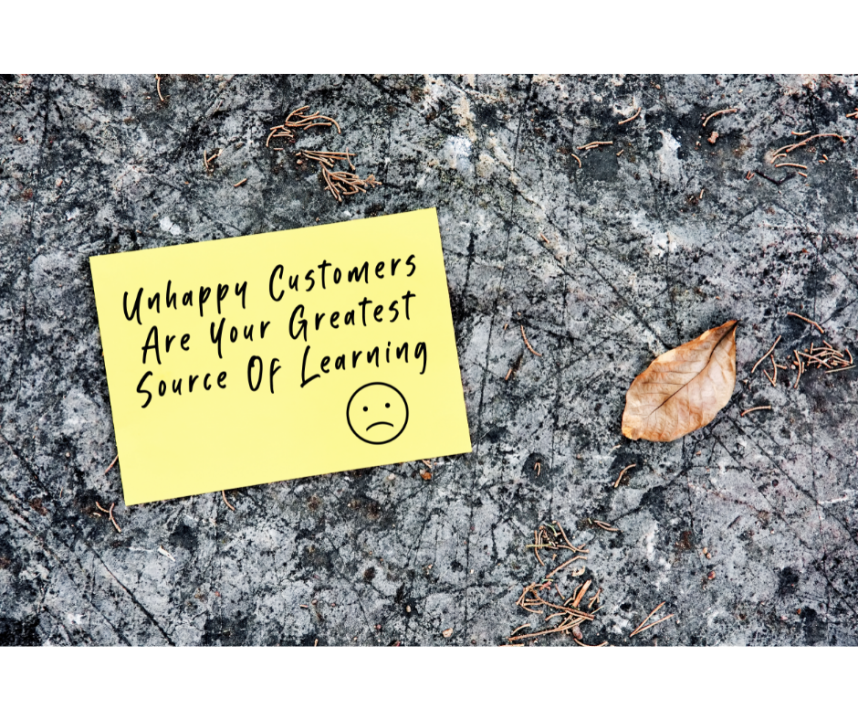 Unhappy Customers
Are Your Greatest
Source Of Learning